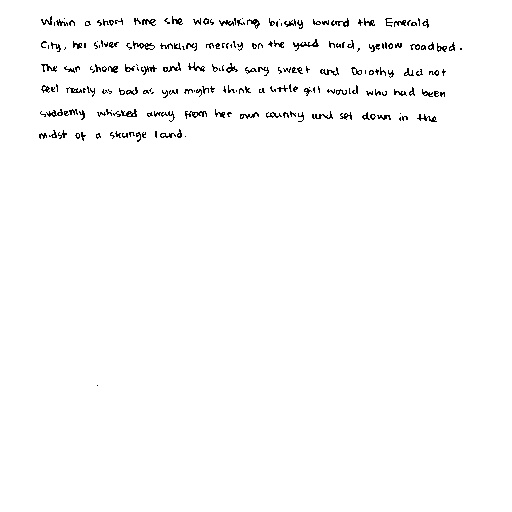 Within a short time she was walking briskly toward the Emerald
City, her silver shoes tinkling merrily on the yard hard, yellow roadbed.
The sun shone bright and the birds sang sweet and Dorothy did not
feel nearly as bad as you might think a little girl would who had been
suddenly whisked away from her own country and set down in the
midst of a strange land.